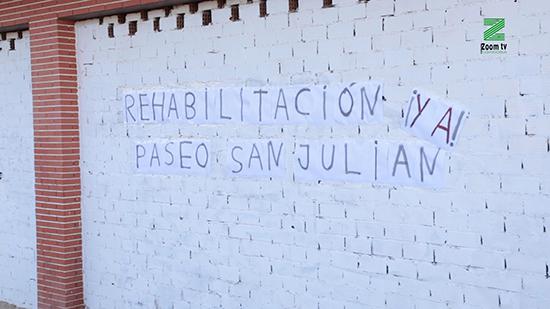 Zoom tv
REHABILITACIÓN ¡YA!
PASEO SAN JULIAN